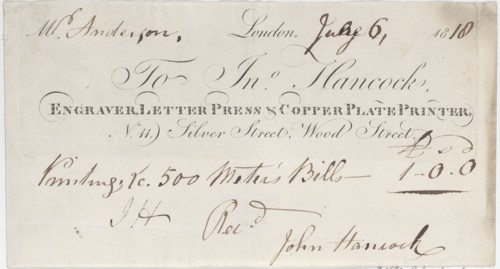 Mr. Anderson, London, July 6, 1818
To Jno. Hancock,
ENGRAVER, LETTER PRESS & COPPER PLATE PRINTER,
No. 11,) Silver Street, Wood Street,
£ s d
Printing &c. 500 Bills 1-0-0
JH Recd
John Hancock